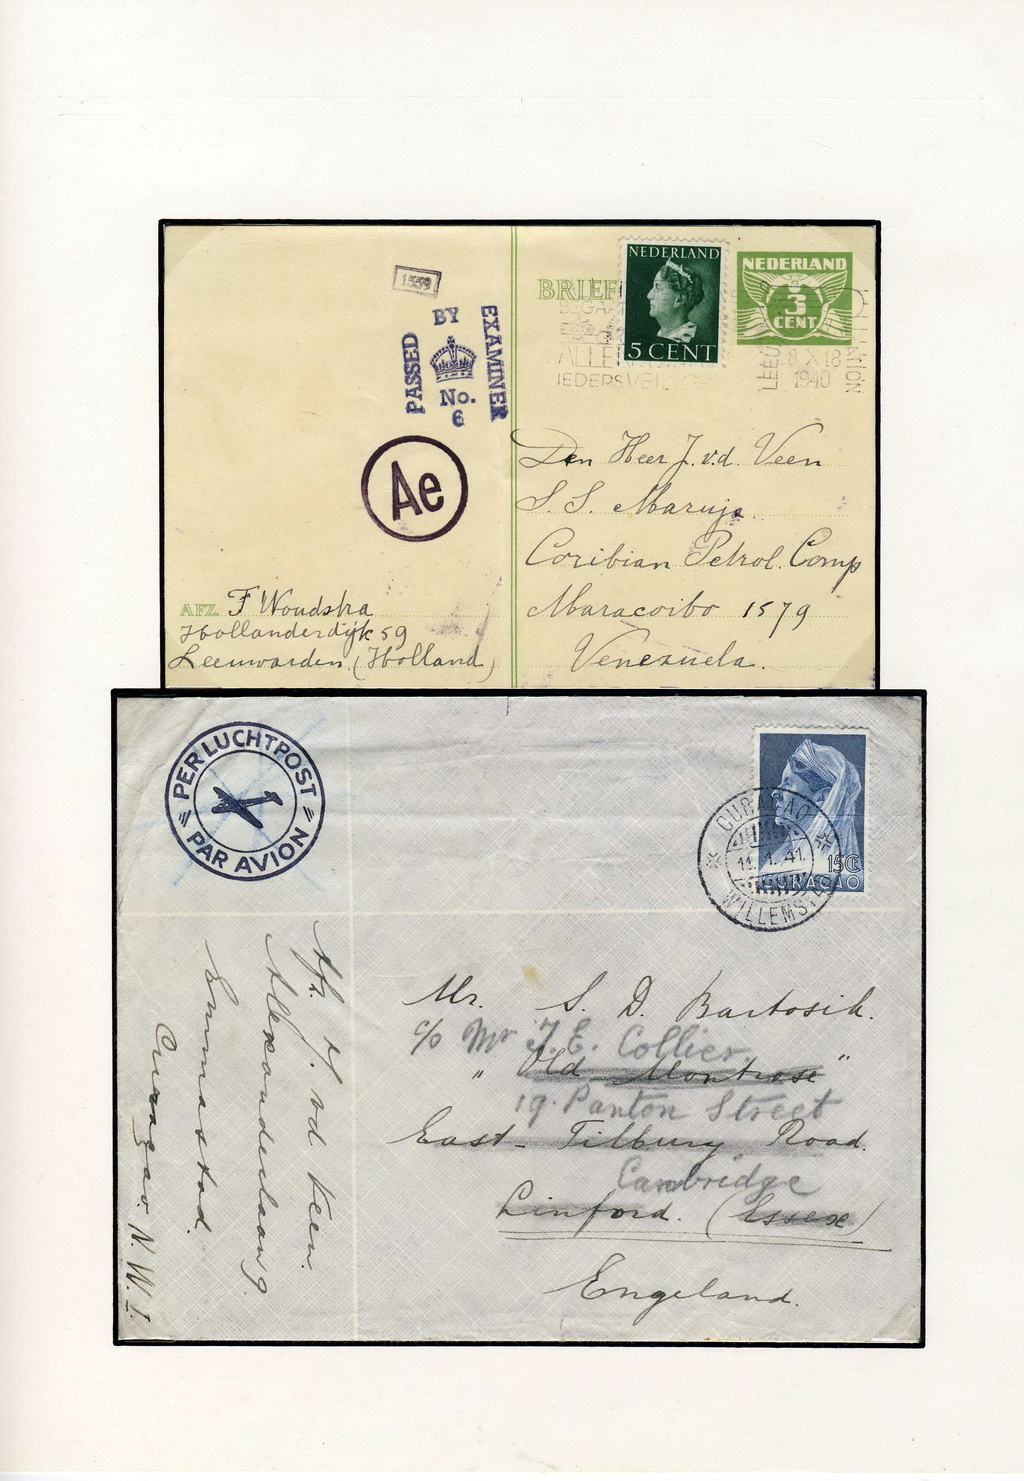 1559
PASSED BY EXAMINER
No.
6
Ae
AFZ. F Woudstra
Hollanderdijk 59
Leeuwarden (Holland)
BRIEF
NEDERLAND
5 CENT
NEDERLAND
3
CENT
8 X 18
1940
Den Heer J. v.d. Veen
S.S. Maruja
Coribian Petrol. Comp
Maracoibo 1579
Venezuela.
PER LUCHTPOST
PAR AVION
15C
CURAÇAO
CURAÇAO
11. 1. 41.
WILLEMSTAD
Afz. J. vd Veen.
Alexanderlaan 9.
Emmastad.
Curaçao. N.W.I.
Mr. S. D. Bartosik.
c/o Mr J. E. Collier
"Old Montrose"
19. Panton Street
East-Tilbury Road.
Cambridge
Linford. (Essex)
Engeland.